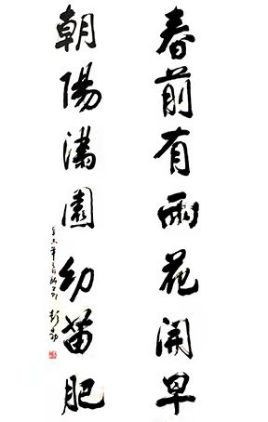 春前有雨花開早
朝陽滿園幼苗肥